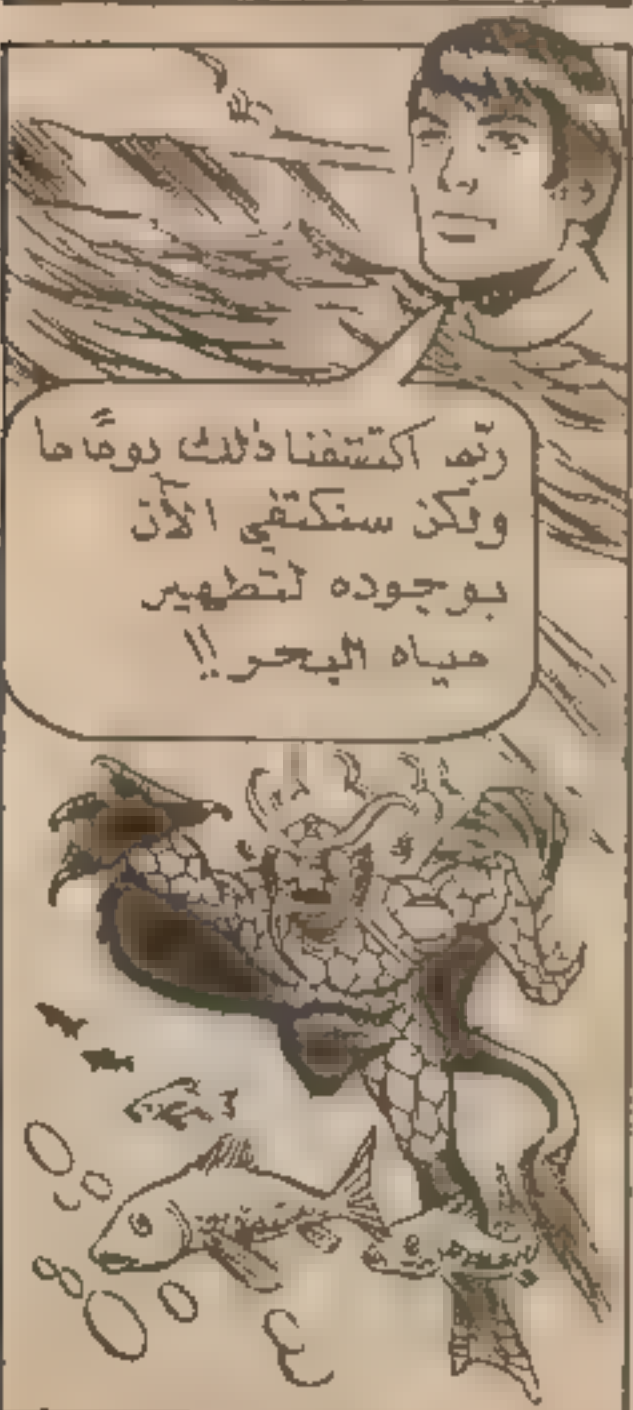 ربّما اكتشفنا ذلك يومًا ما
ولكن سنكتفي الآن
بوجوده لتطهير
مياه البحر!!